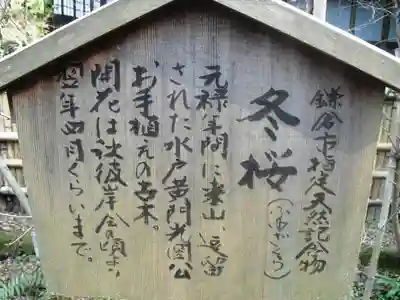 鎌倉市指定天然記念物
冬桜
(ふゆざくら)
元禄年間に来山、逗留
された水戸黄門光圀公
お手植えの古木。
開花は秋彼岸会の頃より
翌年四月ぐらいまで。